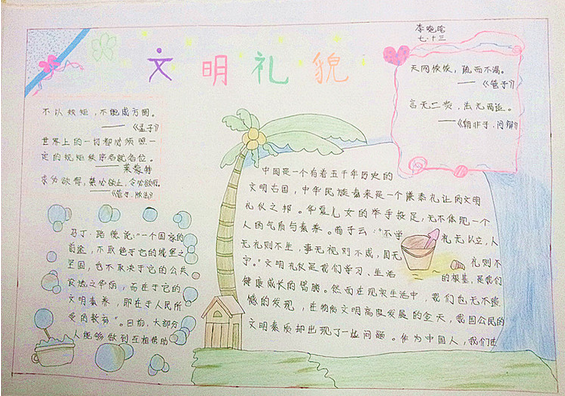 文明礼貌
七.十三
天网恢恢，疏而不漏。
——《管子》
言无二贵，法无两适。
——《韩非子·问辩》
不以规矩，不能成方圆。
——《孟子》
世界上的一切都必须按照一
定的规矩秩序各就各位。
——莱蒙特
求必欲得，禁必欲止，令必欲行。
——《管子·法法》
马丁·路德说："一个国家的
前途，不取决于它的城堡之
坚固，也不取决于它的公共
设施之华丽，而在于它的
文明素养，即在于人民所
受的教育"。日前，大部分
人能够做到互相帮助
中国是一个有着五千年历史的
文明古国，中华民族素来是一个谦恭礼让的文明
礼仪之邦。华夏儿女的举手投足，无不体现一个
人的气质与素养。荀子云："不学礼无以立，人
无礼则不生，事无礼则不成，国无礼则不
宁。"文明礼仪是我们学习、生活的根基，是我们
健康成长的臂膀。然而在现实生活中，我们也无不遗
憾的发现，在物质文明高度发展的今天，我国公民的
文明素质却出现了一些问题。作为中国人，我们这